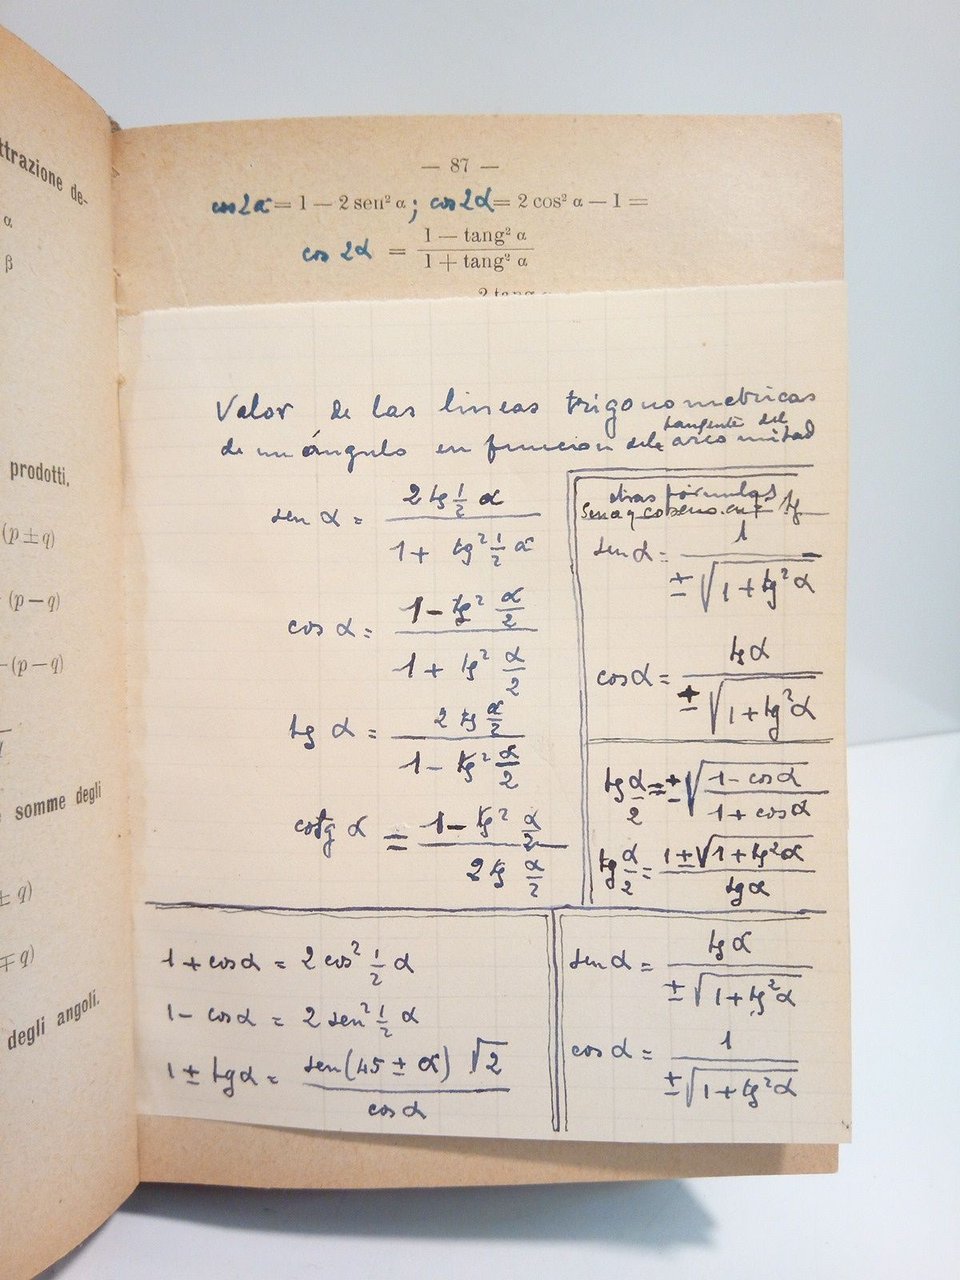 ttrazione de-
α
β
prodotti,
(p ± q)
(p — q)
(p — q)
somme degli
± q)
∓ q)
degli angoli.
— 87 —
cos 2α = 1 — 2 sen² α ; cos 2α = 2 cos² α — 1 =
cos 2α = (1 — tang² α) / (1 + tang² α)
2 tang α
Valor de las lineas trigonometricas
de un ángulo en funcion de la tangente del arco mitad
sen α = (2 tg ½ α) / (1 + tg² ½ α)
cos α = (1 - tg² α/2) / (1 + tg² α/2)
tg α = (2 tg α/2) / (1 - tg² α/2)
cotg α = (1 - tg² α/2) / (2 tg α/2)
otras fórmulas
Seno y coseno en f. tg
sen α = 1 / (± √(1 + tg² α))
cos α = tg α / (± √(1 + tg² α))
tg α/2 = ± √((1 - cos α) / (1 + cos α))
tg α/2 = (1 ± √(1 + tg² α)) / tg α
1 + cos α = 2 cos² ½ α
1 - cos α = 2 sen² ½ α
1 ± tg α = (sen (45 ± α) √2) / cos α
sen α = tg α / (± √(1 + tg² α))
cos α = 1 / (± √(1 + tg² α))